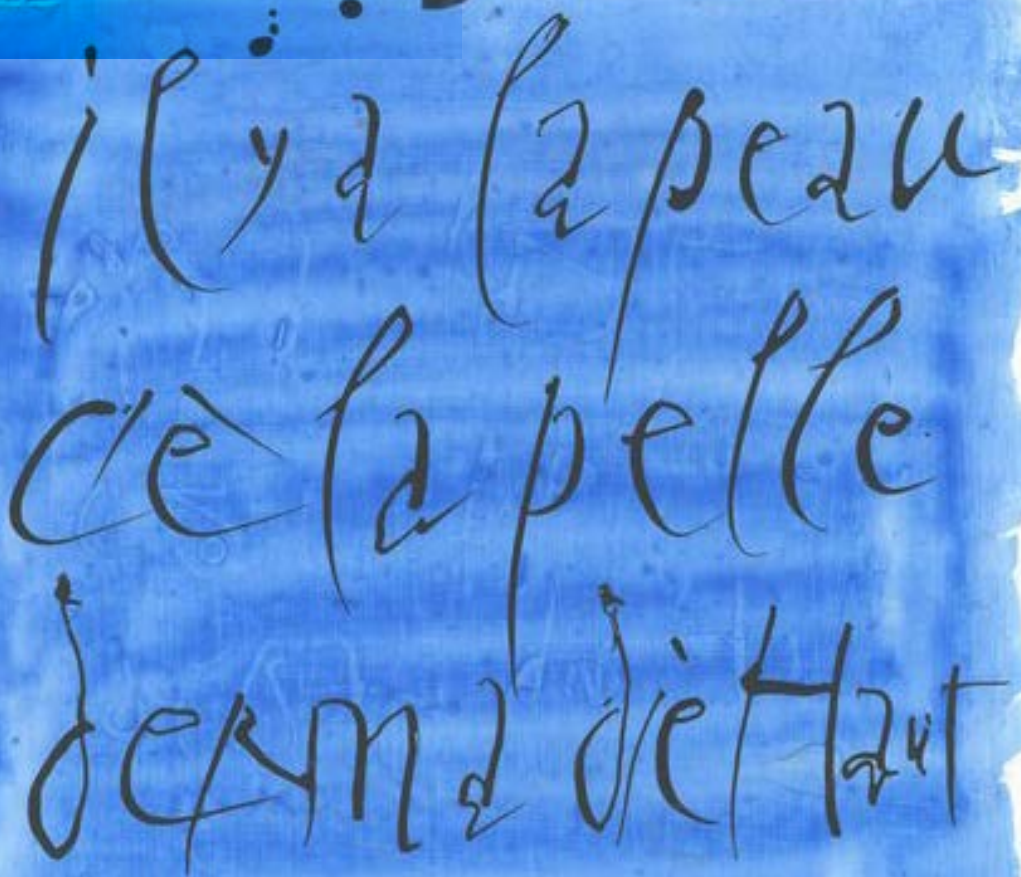 il y a la peau
c'è la pelle
derma d'è Haut